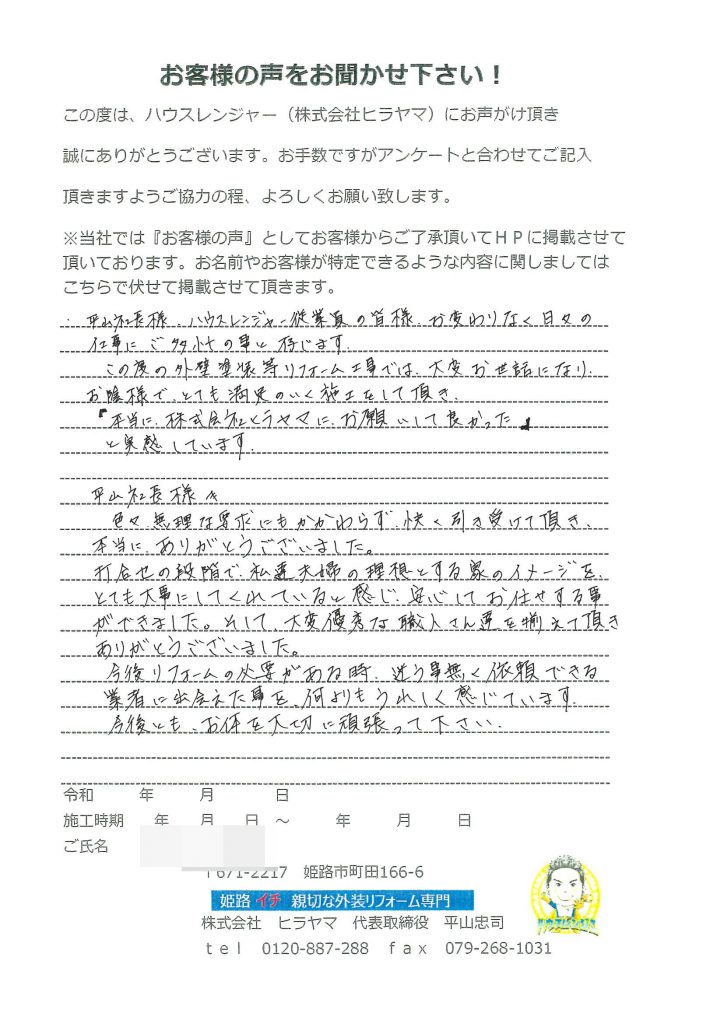 お客様の声をお聞かせ下さい！
この度は、ハウスレンジャー（株式会社ヒラヤマ）にお声がけ頂き
誠にありがとうございます。お手数ですがアンケートと合わせてご記入
頂きますようご協力の程、よろしくお願い致します。
※当社では『お客様の声』としてお客様からご了承頂いてＨＰに掲載させて
頂いております。お名前やお客様が特定できるような内容に関しましては
こちらで伏せて掲載させて頂きます。
・平山社長様、ハウスレンジャー従業員の皆様 お変わりなく日々の
仕事にご多忙の事と存じます。
この度の外壁塗装等リフォーム工事では、大変お世話になり、
お陰様で、とても満足のいく施工をして頂き、
『本当に、株式会社ヒラヤマに、お願いして良かった』
と実感しています。
平山社長様へ
色々、無理な要求にもかかわらず、快く引き受けて頂き、
本当に、ありがとうございました。
打合せの段階で、私達夫婦の理想とする家のイメージを、
とても大事にしてくれていると感じ、安心してお任せする事
ができました。そして、大変優秀な職人さん達を揃えて頂き
ありがとうございました。
今後リフォームの必要がある時、迷う事無く依頼できる
業者に出会えた事を、何よりもうれしく感じています。
今後とも、お体を大切に頑張って下さい。
令和　年　月　日
施工時期　年　月　日　～　年　月　日
ご氏名
〒671-2217　姫路市町田166-6
姫路 イチ 親切な外装リフォーム専門
株式会社　ヒラヤマ　代表取締役　平山忠司
ｔｅｌ　0120-887-288　ｆａｘ　079-268-1031
ハウスレンジャー